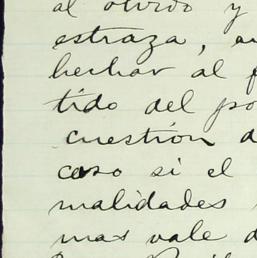 al olvido y
estraza,
hechar al
tido del
cuestión
caso si el
malidades
mas vale